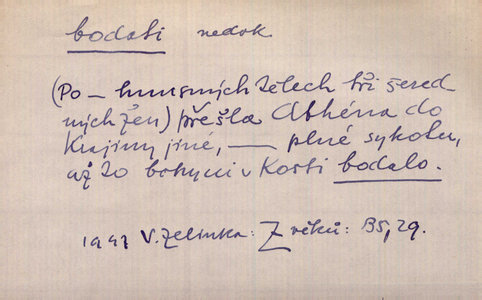 bodati nedok
(Po – hnusných tělech tří šered-
ných žen) přešla Athéna do
Krajiny jiné, — plné sykotu,
až to bohyni v Kosti bodalo.
1947 V. Zelinka: Z věků: BS, 29.